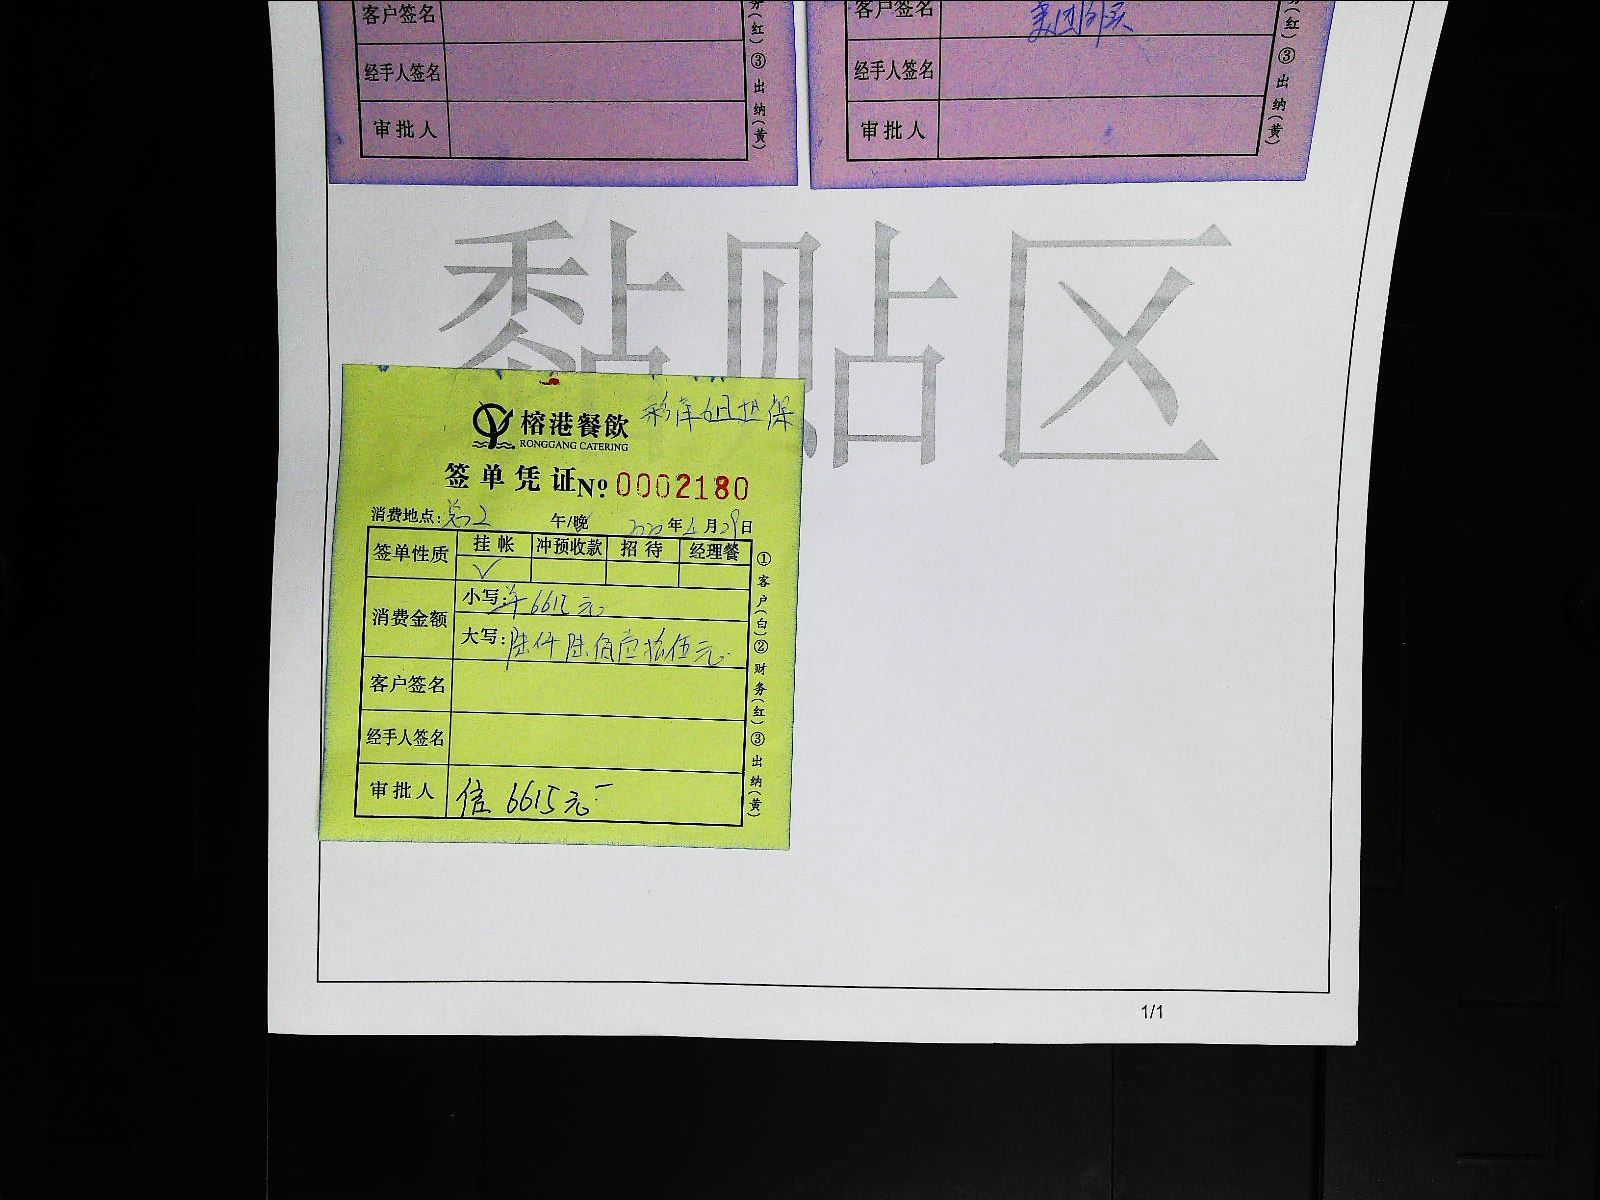 客户签名
经手人签名
审批人
务(红)③出纳(黄)
客户签名 美团外卖
经手人签名
审批人
务(红)③出纳(黄)
黏贴区
榕港餐飲
RONGGANG CATERING
担保
签单凭证 Nº 0002180
消费地点: 午/晚 2020年 月29日
签单性质 挂帐 冲预收款 招待 经理餐
✓
消费金额 小写: 6615元
大写:陆仟陆佰壹拾伍元
客户签名
经手人签名
审批人 信 6615元
①客户(白)②财务(红)③出纳(黄)
1/1